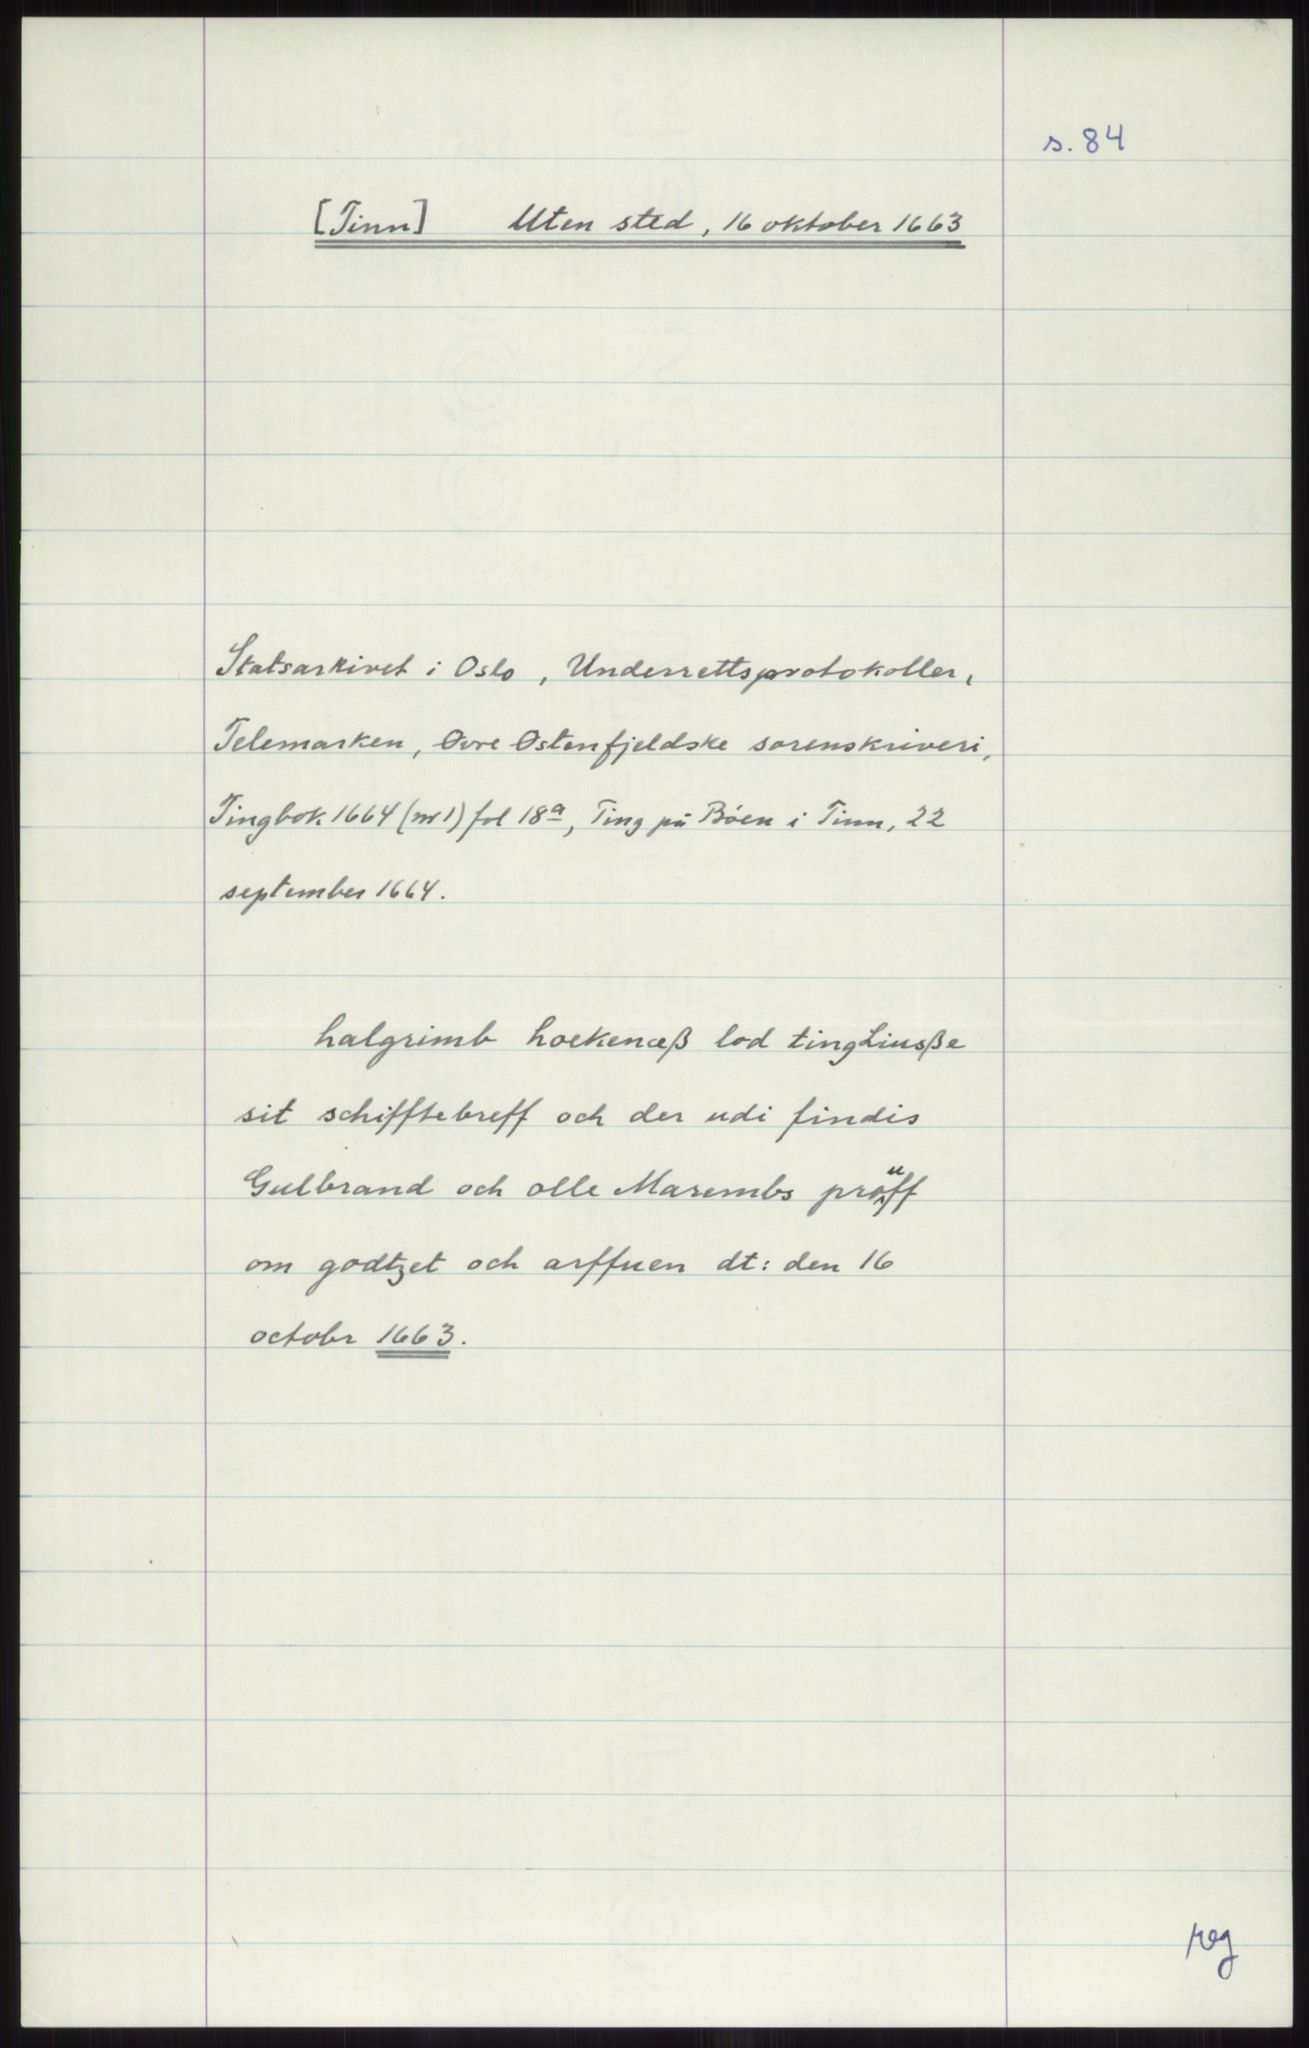 s. 84
[Tinn] Uten sted, 16 oktober 1663
Statsarkivet i Oslo, Underrettsprotokoller,
Telemarken, Øvre Østenfjeldske sorenskriveri,
Tingbok 1664 (nr 1) fol 18a, Ting på Bøen i Tinn, 22
september 1664.
halgrimb hoekenæß lod tingLiusße
sit schifftebreff och der udi findis
Gulbrand och olle Marembs pröuff
om godtzet och arffuen dt: den 16
octobr 1663.
reg